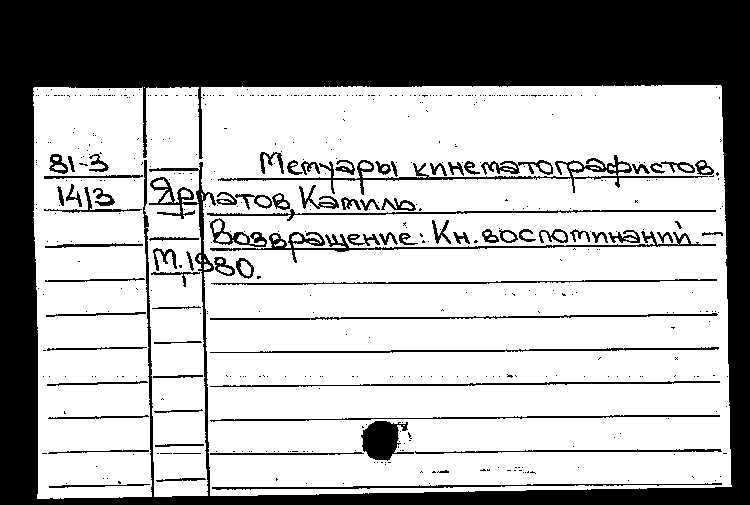 81-3 Мемуары кинематографистов.
14/3 Ярматов, Камиль.
Возвращение: Кн. воспоминаний. –
М., 1980.